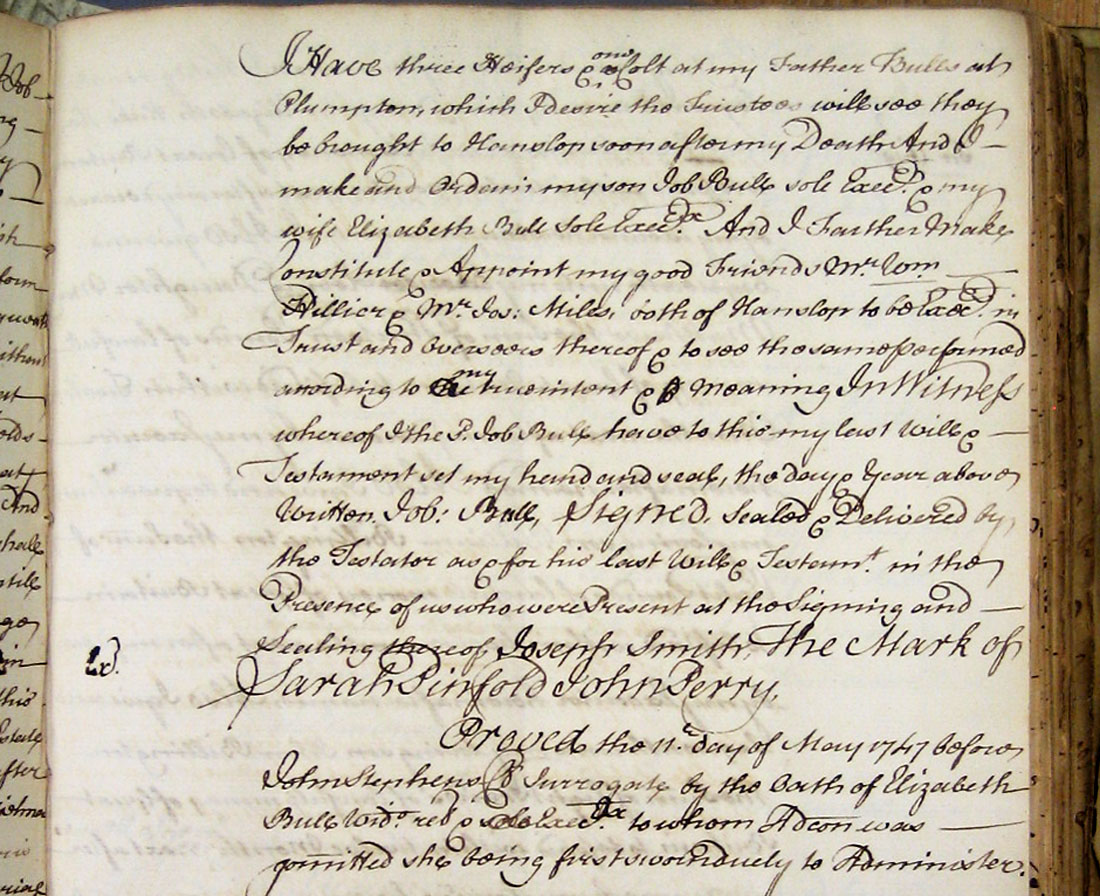 I Have three Heifers & one Colt at my Father Bulls at
Plumpton, which I desire the Trustees will see they
be brought to Hanslop soon after my Death And I
make and Ordain my son Job Bull sole Execr. & my
wife Elizabeth Bull Sole Execx. And I Farther Make
Constitute & Appoint my good Friends Mr. Wm
Hillier & Mr. Jos: Miles, both of Hanslop to be Execs. in
Trust and Overseers thereof & to see the same performed
according to my true intent & meaning In Witness
whereof I the sd. Job Bull have to this my last Will &
Testament set my hand and seal, the day & Year above
Written. Job: Bull, Signed, Sealed & Delivered by
the Testator as & for his last Will & Testamt. in the
Presence of us who were Present at the Signing and
Sealing thereof, Joseph Smith, The Mark of
Ex.
Sarah Pinfold John Perry.
Proved the 11th day of May 1747 before
John Stephens Surrogate by the Oath of Elizabeth
Bull Wido. rel & sole Execx. to whom Adcon was
comitted she being first sworn duely to Administer.
Job
And
shall
this
Estate
after